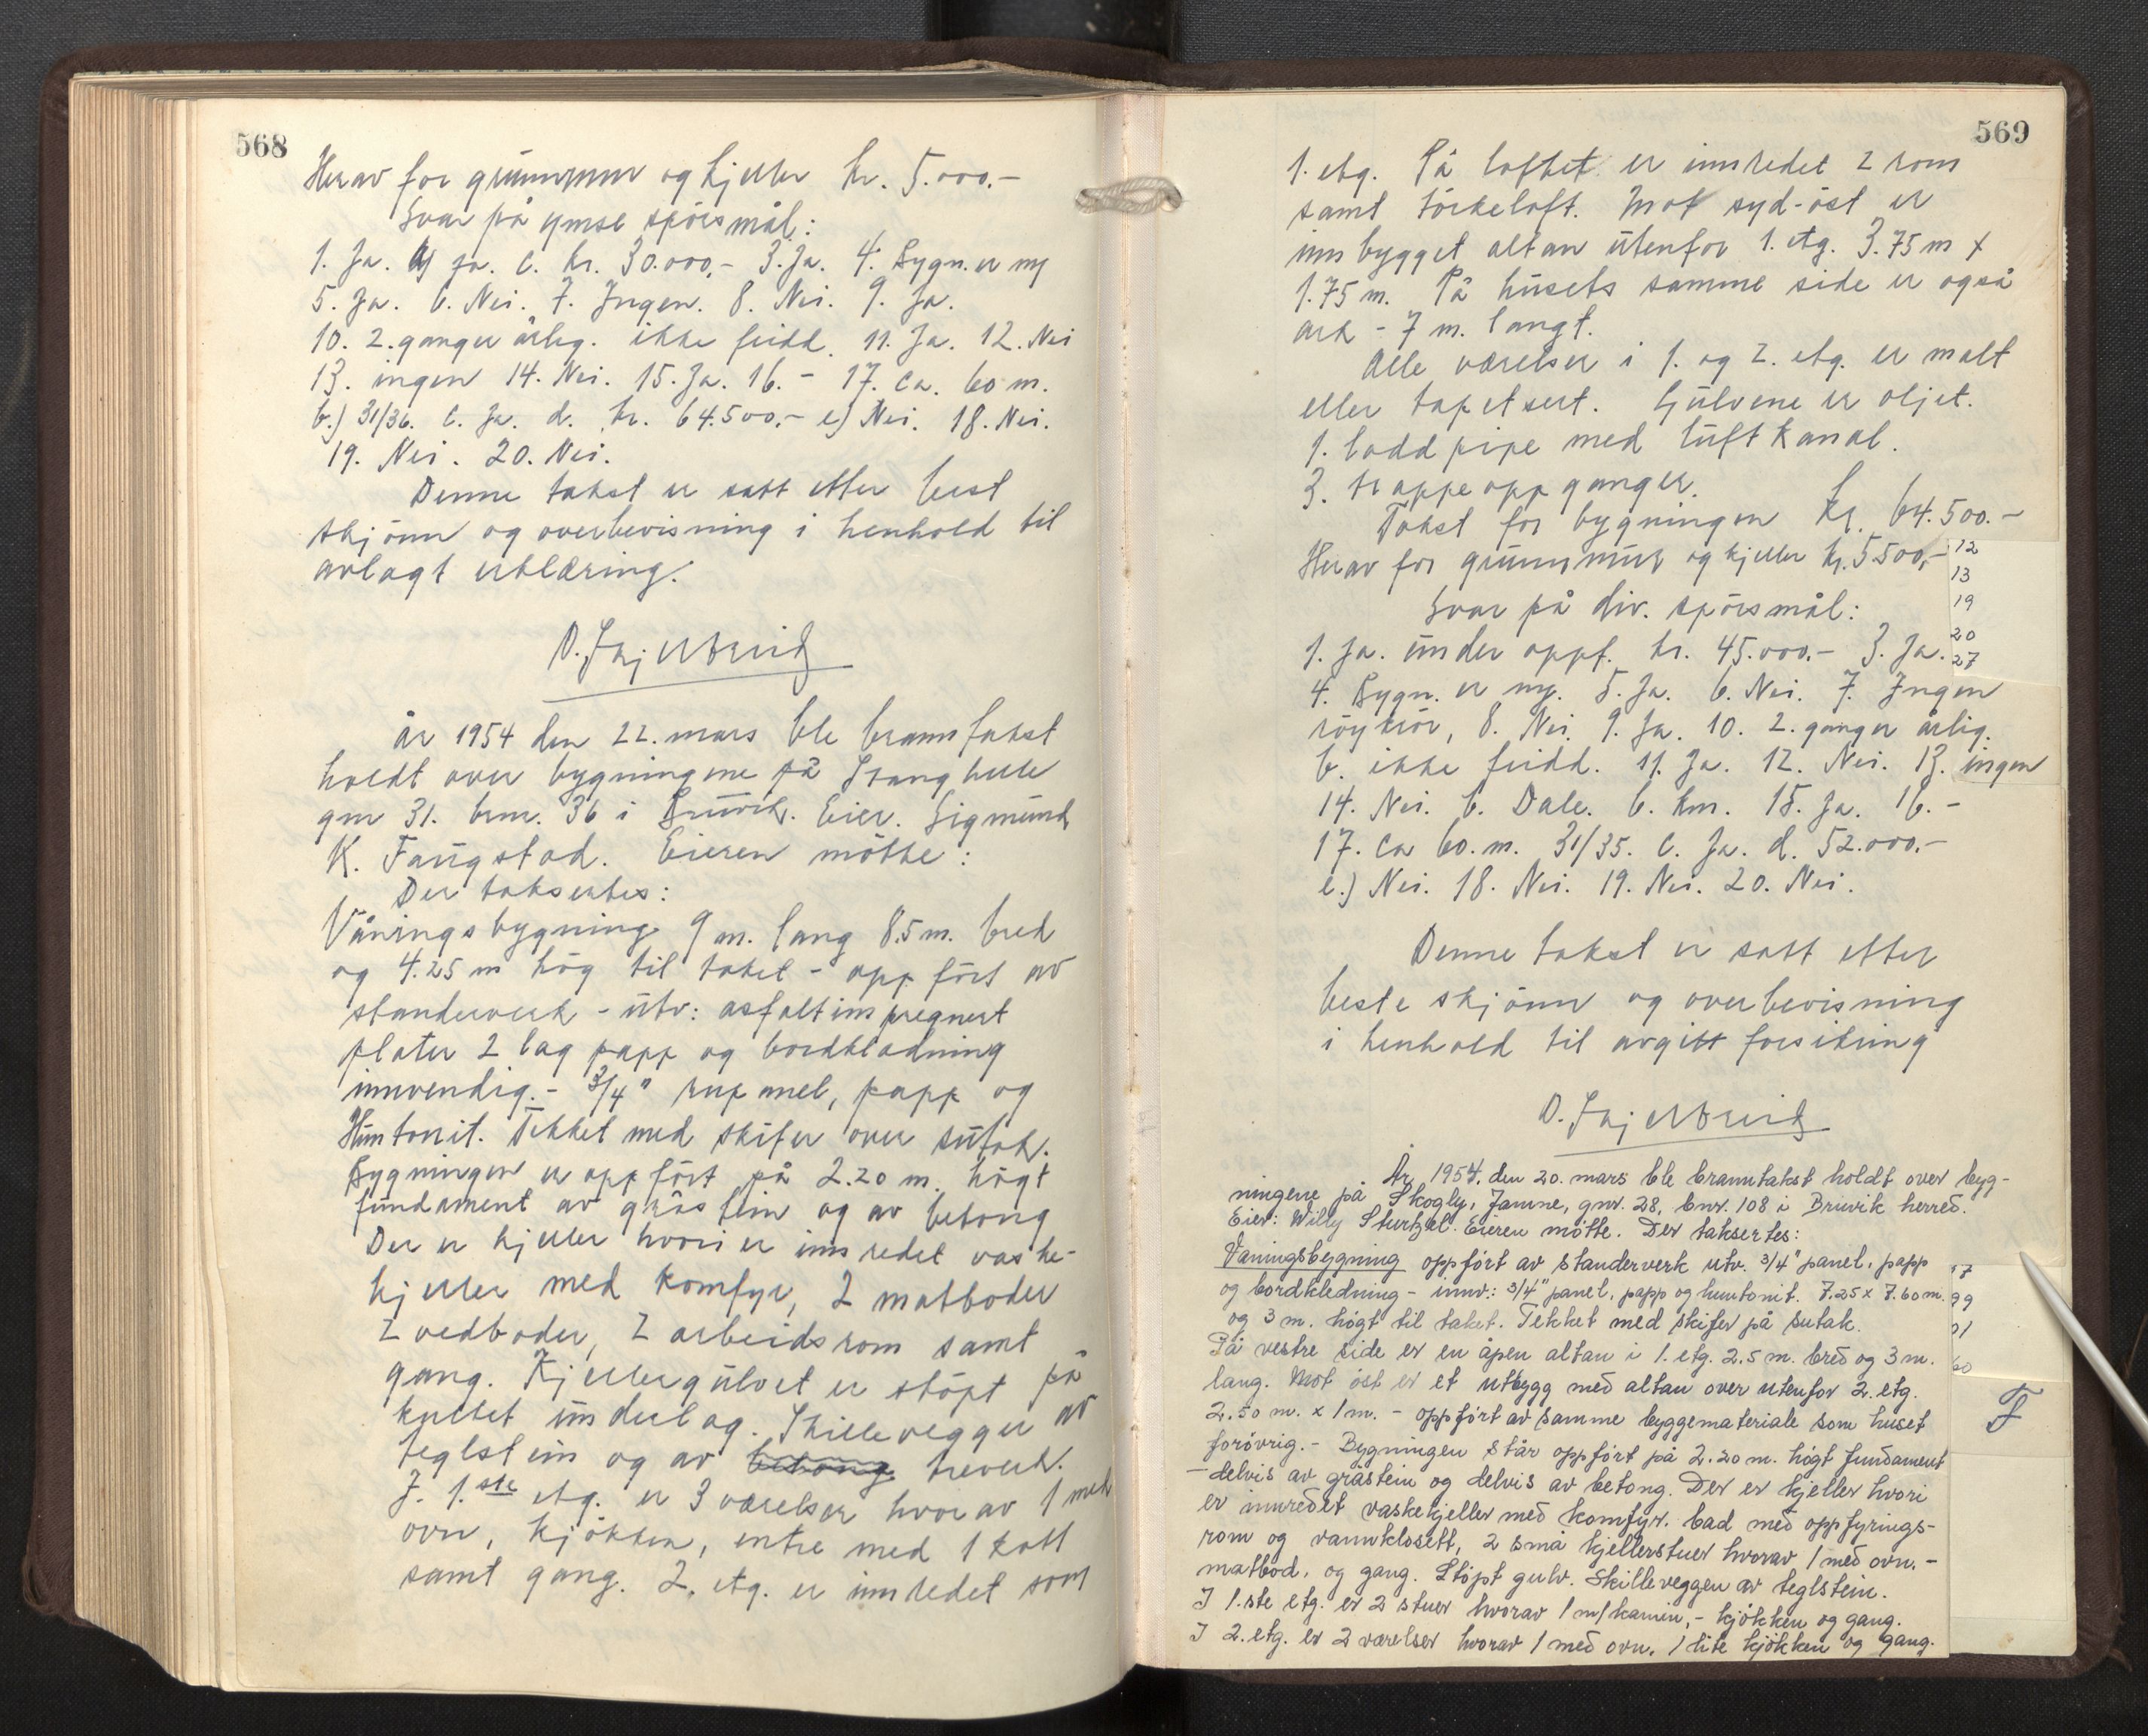 568
Herav for grunnmur og kjeller kr. 5.000.-
Svar på ymse spörsmål:
1. Ja. b) Ja. c. kr. 30.000,- 3. Ja. 4. Bygn. er ny
5. Ja. 6. Nei. 7. Ingen. 8. Nei. 9. Ja.
10. 2. ganger årlig. ikke feidd. 11. Ja. 12. Nei
13. ingen 14. Nei. 15. Ja. 16. - 17. ca. 60 m.
b.) 31/36. c. Ja. d. kr. 64.500,- e) Nei. 18. Nei.
19. Nei. 20. Nei.
Denne takst er satt etter best
skjönn og overbevisning i henhold til
avlagt erklæring.
O. Skjerbreid
År 1954 den 22. mars ble branntakst
holdt over bygningene på Stanghelle
gnr 31. bnr. 36 i Bruvik. Eier. Sigmund
K. Faugstad. Eieren mötte:
Der taksertes:
Våningsbygning 9 m. lang 8.5 m. bred
og 4.25 m hög til taket - oppfört av
standerverk - utv: asfaltimpregnert
plater 2 lag papp og bordkledning
innvendig. - 3/4" rupanel, papp og
Huntonit. Tekket med skifer over sutak.
Bygningen er oppfört på 2.20 m. högt
fundament av gråstein og av betong
Der er kjeller hvori er innredet vaske-
kjeller med komfyr, 2 matboder
2 vedboder, 2 arbeidsrom samt
gang. Kjellergulvet er stöpt på
kultet underlag. Skillevegger av
teglstein og av betong treverk.
I. 1.ste etg. er 3 værelser hvorav 1 med
ovn, kjökken, entre med 1 kott
samt gang. 2. etg. er innredet som
569
1. etg. På loftet er innredet 2 rom
samt törkeloft. Mot syd-öst er
innbygget altan utenfor 1. etg. 3.75 m x
1.75 m. På husets samme side er også
ark - 7 m. langt.
Alle værelser i 1. og 2. etg. er malt
eller tapetsert. Gulvene er oljet.
1. lodd pipe med luftkanal.
3. trappeoppganger.
Takst for bygningen kr. 64.500.-
Herav for grunnmur og kjeller kr. 5500,-
Svar på div. spörsmål:
1. Ja. under oppf. kr. 45.000.- 3. Ja.
4. Bygn. er ny. 5. Ja. 6. Nei. 7. Ingen
röykrör, 8. Nei. 9. Ja. 10. 2. ganger årlig.
b. ikke feidd. 11. Ja. 12. Nei. 13. ingen
14. Nei. b. Dale. 6. km. 15. Ja. 16. -
17. Ca 60. m. 31/35. c. Ja. d. 52.000.-
e.) Nei. 18. Nei. 19. Nei. 20. Nei.
Denne takst er satt etter
beste skjönn og overbevisning
i henhold til avgitt forsikring
O. Skjerbreid
År 1954, den 20. mars ble branntakst holdt over byg-
ningene på Skogly, Jamne, gnr. 28, bnr. 108 i Bruvik herred.
Eier: Willy Sturtzel. Eieren mötte. Der taksertes:
Våningsbygning oppfört av standerverk utv. 3/4" panel, papp
og bordkledning - innv.: 3/4" panel, papp og huntonit. 7.25 x 7.60 m.
og 3 m. högt til taket. Tekket med skifer på sutak.
På vestre side er en åpen altan i 1. etg. 2.5 m. bred og 3 m.
lang. Mot öst er et utbygg med altan over utenfor 2. etg.
2.50 m. x 1 m. - oppfört av samme byggemateriale som huset
forövrig. - Bygningen står oppfört på 2.20 m. högt fundament
- delvis av gråstein og delvis av betong. Der er kjeller hvori
er innredet vaskekjeller med komfyr. bad med oppfyrings-
rom og vannklosett, 2 små kjellerstuer hvorav 1 med ovn. -
matbod, og gang. Stöpt gulv. Skilleveggen av teglstein.
I 1.ste etg. er 2 stuer hvorav 1 m/kamin, - kjökken og gang.
I 2. etg. er 2 værelser hvorav 1 med ovn, 1 lite kjökken og gang.
12
13
19
20
27
99
01
60
F